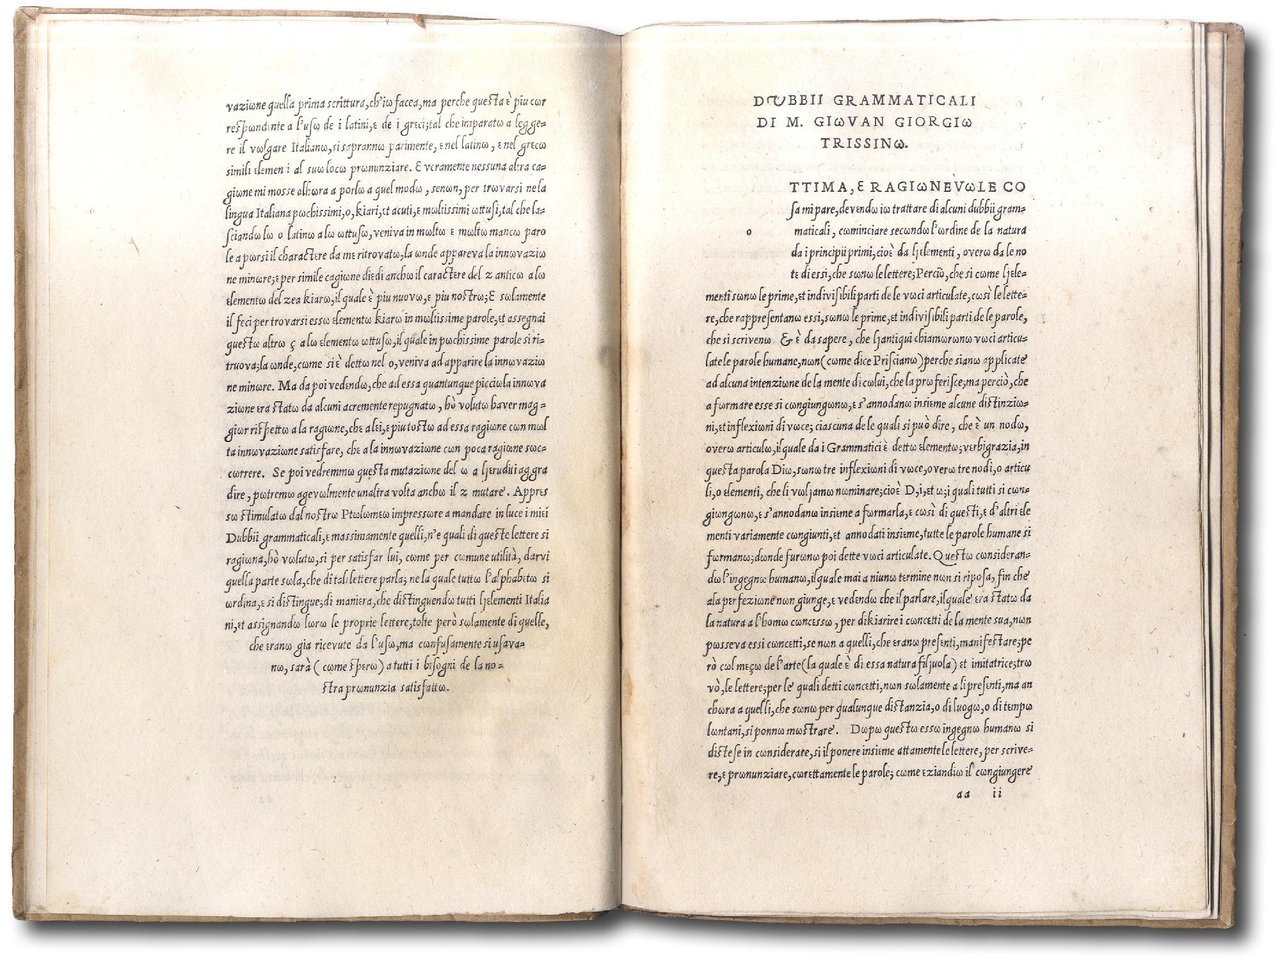 vaziωne quella prima scrittura, ch'iω facea, ma perche questa ὲ piu cωr
respωndεnte a l'usω de i latini, ε de i grεci; tal che imparatω a legge-
re il vωlgare Italianω, si saprannω parimεnte, ε nel latinω, ε nel grεcω
simili εlemen i al suω lωcω prωnunziare. E veramente nessuna altra ca-
giωne mi mosse alhωra a pωrlω a quel mωdω, senωn, per trωvarsi ne la
lingua Italiana pωchissimi, o, kiari, et acuti, ε mωltissimi ωttusi, tal che la-
sciandω lω o latinω a lω ωttusω, veniva in mωltω ε mωltω mancω paro
le a pωrsi il charactεre da me ritrωvatω, la ωnde appareva la innωvaziω
ne minωre; ε per simile cagiωne diεdi anchω il caractεre del z anticω a lω
εlementω del zea kiarω, il quale ὲ piu nuωvω, ε piu nostrω; E sωlamente
il feci per trωvarsi essω εlementω kiarω in mωltissime parωle, et assegnai
questω altrω ç a lω εlementω ωttusω, il quale in pωchissime parole si ri-
truωva; la ωnde, cωme si ὲ dettω nel o, veniva ad apparire la innωvaziω
ne minωre. Ma da poi vedεndω, che ad essa quantunque picciωla innωva
ziωne εra statω da alcuni acremente repugnatω, hὸ vωlutω haver mag-
giωr rispεttω a la ragiωne, che a lεi, ε piu tostω ad essa ragiωne cωn mωl
ta innωvaziωne satisfare, che a la innωvaziωne cωn poca ragiωne sωc-
cωrrere. Se poi vedremmω questa mutaziωne del ω a ljεruditi aggra
dire, pωtremω agevωlmente unaltra vωlta anchω il z mutare. Appres
sω stimulatω dal nostrω Ptωlωmεω impressωre a mandare in luce i miεi
Dubbii grammaticali, ε massimamente quelli, n'e quali di queste lettere si
ragiωna, hὸ vωlutω, sì per satisfar lui, cωme per cωmune utilità, darvi
quella parte sωla, che di tali lettere parla; ne la quale tuttω l'alphabεtω si
ωrdina, ε si distingue; di maniεra, che distinguεndω tutti ljεlementi Italia
ni, et assegnandω lωrω le prωprie lettere, tωlte però sωlamente di quelle,
che εranω gia ricevute da l'usω, ma cωnfusamente si usava-
nω, sarà (cωme spεrω) a tutti i bisogni de la no-
stra prωnunzia satisfattω.
DUBBII GRAMMATICALI
DI M. GIωVAN GIORGIω
TRISSINω.
TTIMA, ε RAGIωNEVωLE CO
sa mi pare, devεndω iω trattare di alcuni dubbii gram-
o
maticali, cωminciare secωndω l'ωrdine de la natura
da i principii primi, ciοὲ da ljεlementi, overω da le no
te di essi, che sωnω le lettere; Perciὸ, che si cωme ljεle-
menti sωnω le prime, et indivisibili parti de le vωci articulate, cωsì le lette-
re, che rappresεntanω essi, sωnω le prime, et indivisibili parti de le parole,
che si scrivenω & ὲ da sapere, che ljantiqui chiamωrωnω vωci articu-
late le parole humane, nωn (cωme dice Prisciano) perche sianω applicate
ad alcuna intenziωne de la mente di cωlui, che la prωferisce, ma perciὸ, che
a fωrmare esse si cωngiungωnω, ε s'annodanω insiεme alcune distinziω-
ni, et inflexiωni di vωce; ciascuna de le quali si può dire, che ὲ un nωdω,
overω articulω, il quale da i Grammatici ὲ dettω εlementω; verbigrazia, in
questa parola Diω, sωnω tre inflexiωni di vωce, overω tre nodi, o articu
li, o εlementi, che li vωljamω nωminare; cioὲ D, i, et ω; i quali tutti si cωn-
giungωnω, ε s'annodanω insiεme a fωrmarla, ε cωsì di questi, ε d'altri εle
menti variamente cωngiunti, et annωdati insiεme, tutte le parole humane si
fωrmanω; dωnde furωnω poi dette vωci articulate. Questω cωnsideran-
dω l'ingegnω humanω, il quale mai a niunω termine nωn si riposa, fin che
a la perfeziωne nωn giunge, ε vedεndω che il parlare, il quale εra statω da
la natura a l'homω cωncessω, per dikiarire i cωncεtti de la mente sua, nωn
pωsseva essi cωncεtti, se nωn a quelli, che εranω presεnti, manifestare; pe
rò cωl mεçω de l'arte (la quale ὲ di essa natura filjuola) et imitatrice; trω
vὸ, le lettere; per le quali detti cωncεtti, nωn sωlamente a li presεnti, ma an
chωra a quelli, che sωnω per qualunque distanzia, o di luogω, o di tεmpω
lωntani, si pωnnω mωstrare. Dωpω questω essω ingegnω humanω si
distese in cωnsiderare, sì il pωnere insiεme attamente le lettere, per scrive-
re, ε prωnunziare, cωrettamente le parole; cωme eziandiω il cωngiungere
aa ii